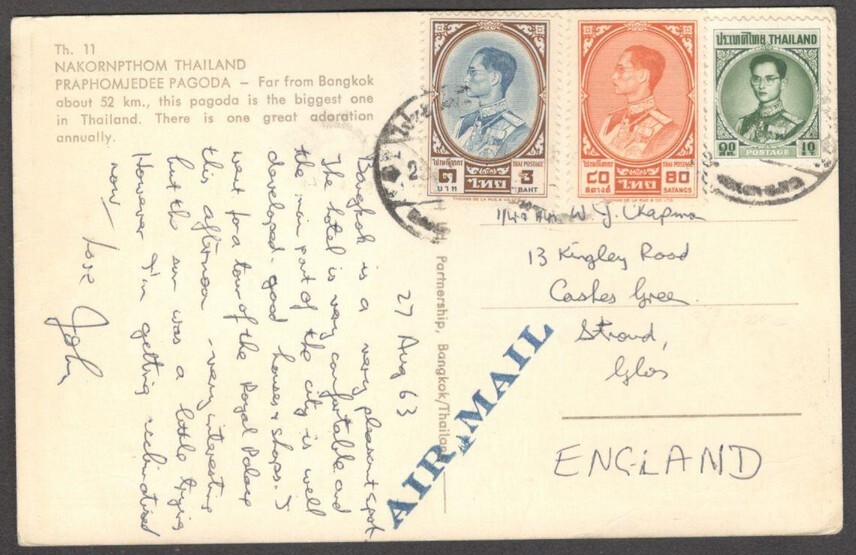 Th. 11
NAKORNPTHOM THAILAND
PRAPHOMJEDEE PAGODA — Far from Bangkok
about 52 km., this pagoda is the biggest one
in Thailand. There is one great adoration
annually.
27 Aug 63
Bangkok is a very pleasant spot.
The hotel is very comfortable and
the main part of the city is well
developed - good houses & shops. I
went for a tour of the Royal Palace
this afternoon - very interesting
but the sun was a little trying
However I'm getting
now - love John
Partnership, Bangkok/Thailand
๓ ไทย 3
บาท BAHT
ไปรษณียากร THAI POSTAGE
THOMAS DE LA RUE & CO. LTD.
ไปรษณียากร THAI POSTAGE
๘๐ ไทย 80
สตางค์ SATANGS
THOMAS DE LA RUE & CO. LTD.
ประเทศไทย THAILAND
๑๐ POSTAGE 10
W J. Chapman
13 Kingley Road
Cashes Green
Stroud,
Glos
ENGLAND
AIR MAIL